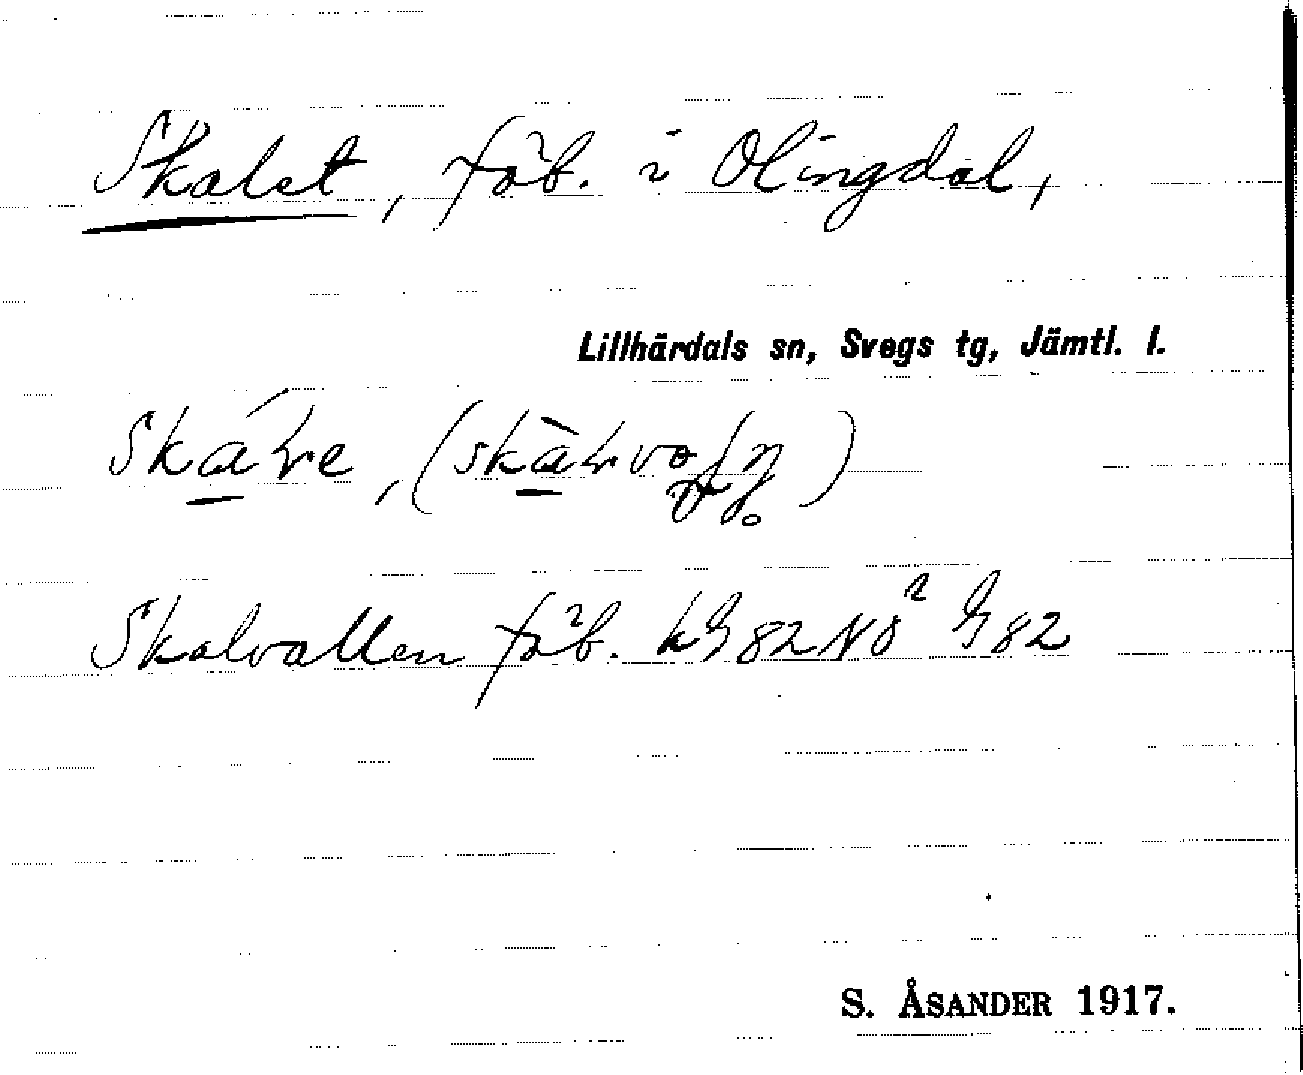 Skalet, fäb. i Olingdal,
Lillhärdals sn, Svegs tg, Jämtl. l.
Skalvallen fäb. 82 NO² 82
S. ÅSANDER 1917.